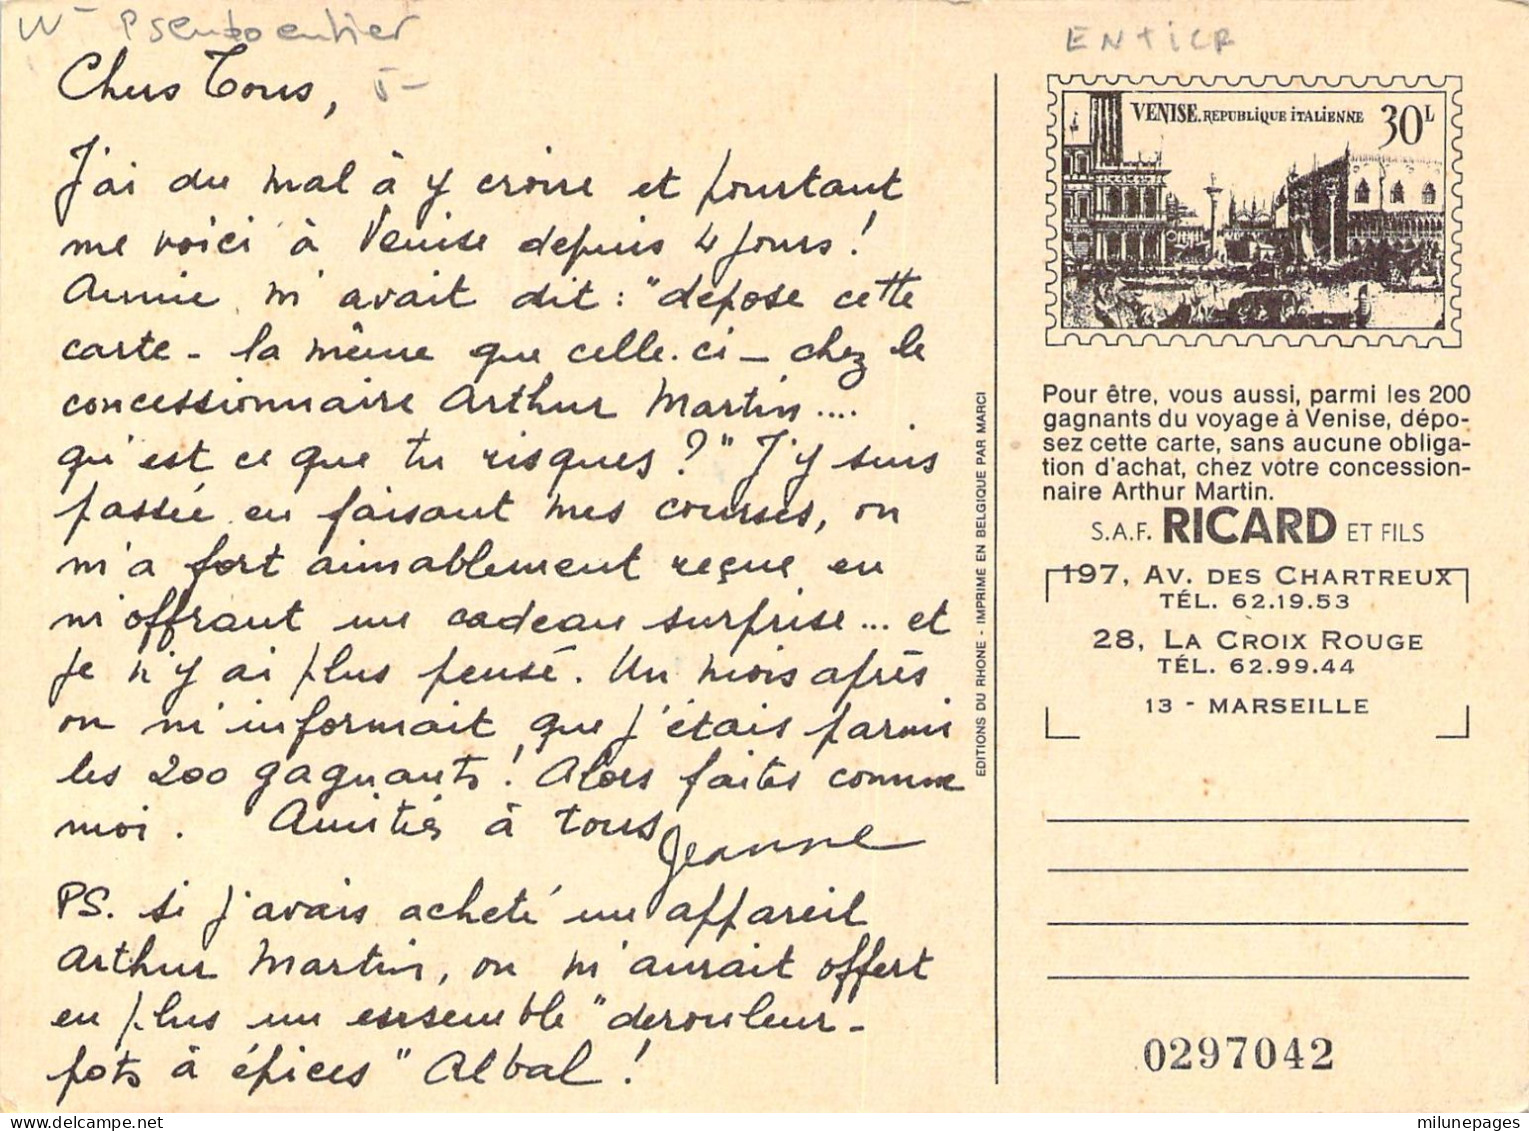 Pseudo entier
ENTIER
Chers Tous,
J'ai du mal à y croire et pourtant
me voici à Venise depuis 4 jours !
Annie m'avait dit : "depose cette
carte - la même que celle-ci - chez le
concessionnaire Arthur Martin....
qu'est ce que tu risques ?" J'y suis
passée en faisant mes courses, on
m'a fort aimablement reçue en
m'offrant un cadeau surprise... et
je n'y ai plus pensé. Un mois après
on m'informait que j'étais parmi
les 200 gagnants ! Alors faites comme
moi. Amitiés à tous
Jeanne
PS. si j'avais acheté un appareil
Arthur Martin, on m'aurait offert
en plus un ensemble "derouleur-
pots à épices" Albal !
EDITIONS DU RHONE - IMPRIME EN BELGIQUE PAR MARCI
VENISE. REPUBLIQUE ITALIENNE 30L
Pour être, vous aussi, parmi les 200
gagnants du voyage à Venise, dépo-
sez cette carte, sans aucune obliga-
tion d'achat, chez votre concession-
naire Arthur Martin.
S.A.F. RICARD ET FILS
197, AV. DES CHARTREUX
TÉL. 62.19.53
28, LA CROIX ROUGE
TÉL. 62.99.44
13 - MARSEILLE
0297042
milunepages